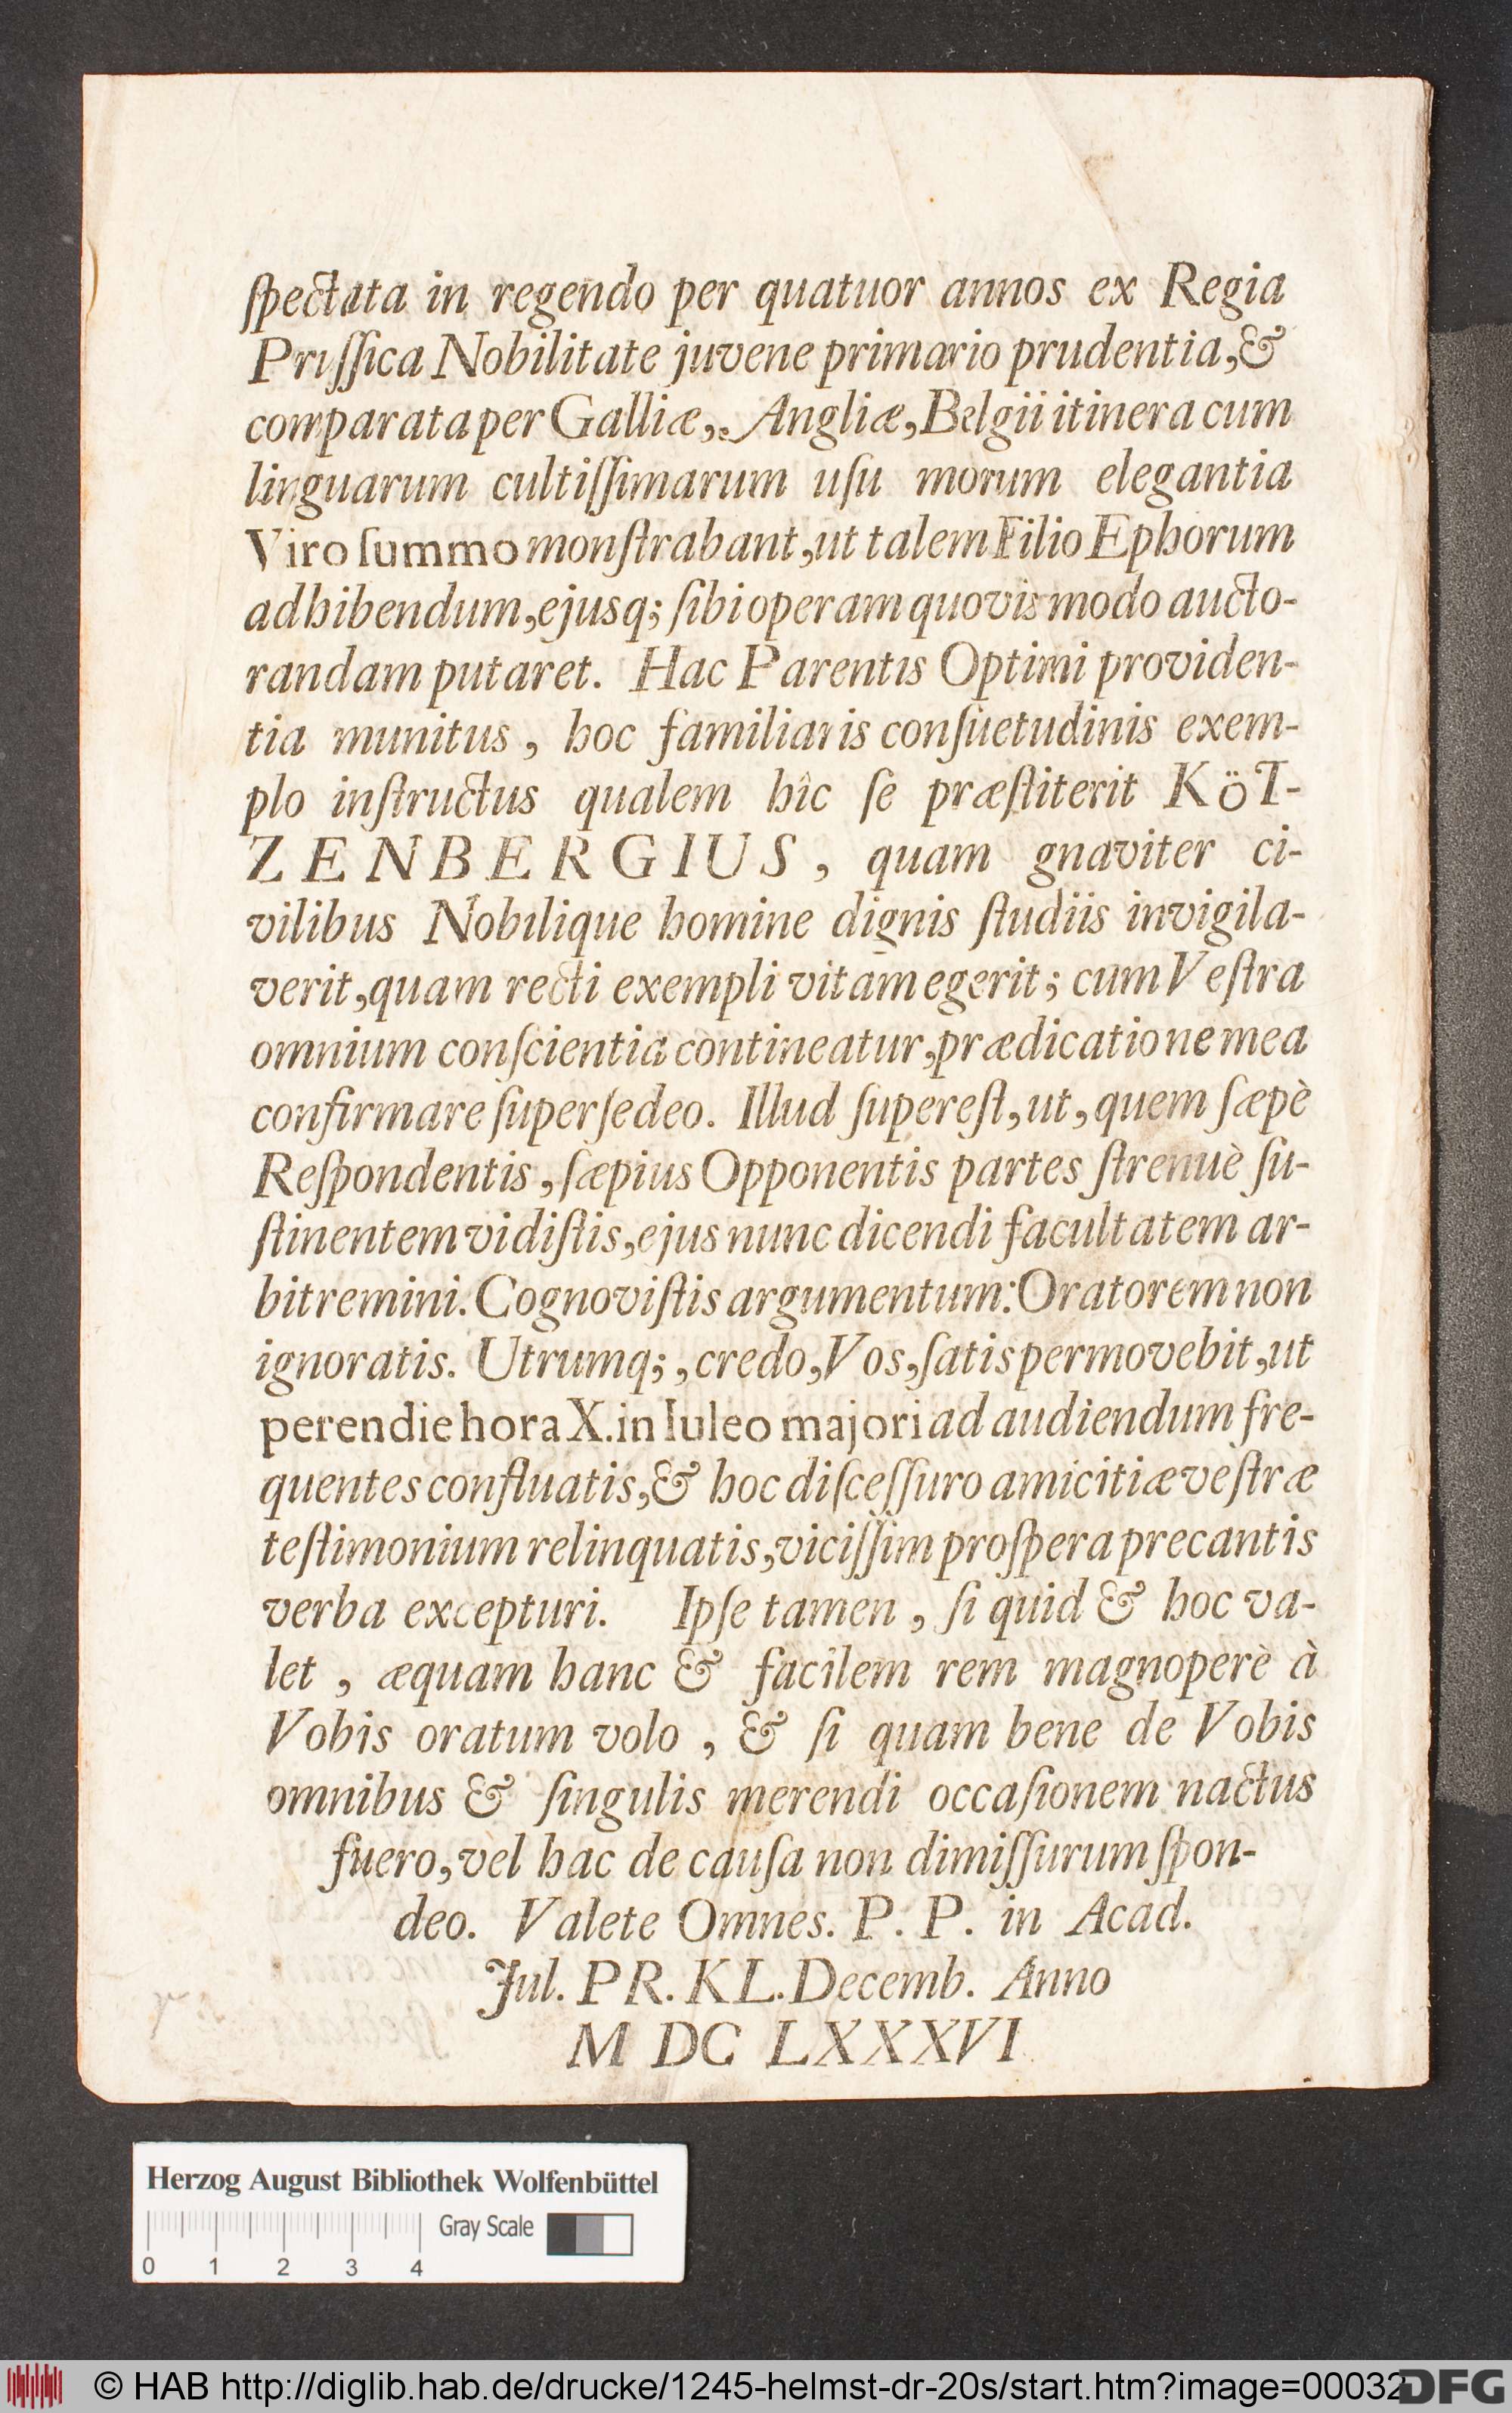 ſpectata in regendo per quatuor annos ex Regia
Priſſica Nobilitate juvene primario prudentia,&
comparata per Galliæ,, Angliæ, Belgii itinera cum
linguarum cultiſſimarum uſu morum elegantia
Viro ſummo monſtrabant, ut talem Filio Ephorum
adhibendum, ejusq; ſibi operam quovis modo aucto-
randam putaret. Hac Parentis Optimi providen-
tia munitus, hoc familiaris conſuetudinis exem-
plo inſtructus qualem hîc ſe præſtiterit KöT-
ZENBERGIUS, quam gnaviter ci-
vilibus Nobilique homine dignis ſtudiis invigila-
verit, quam recti exempli vitam egerit; cum Veſtra
omnium conſcientia contineatur, prædicatione mea
confirmare ſuperſedeo. Illud ſupereſt, ut, quem ſæpè
Reſpondentis, ſæpius Opponentis partes ſtrenuè ſu-
ſtinentem vidiſtis, ejus nunc dicendi facultatem ar-
bitremini. Cognoviſtis argumentum: Oratorem non
ignoratis. Utrumq;, credo, Vos, ſatis permovebit, ut
perendie hora X. in Iuleo majori ad audiendum fre-
quentes confluatis, & hoc diſceſſuro amicitiæ veſtræ
teſtimonium relinquatis, viciſſim proſpera precantis
verba excepturi. Ipſe tamen, ſi quid & hoc va-
let, æquam hanc & facilem rem magnoperè à
Vobis oratum volo, & ſi quam bene de Vobis
omnibus & ſingulis merendi occaſionem nactus
fuero, vel hac de cauſa non dimiſſurum ſpon-
deo. Valete Omnes. P. P. in Acad.
Jul. PR. KL. Decemb. Anno
M DC LXXXVI
Herzog August Bibliothek Wolfenbüttel
Gray Scale
0 1 2 3 4
© HAB http://diglib.hab.de/drucke/1245-helmst-dr-20s/start.htm?image=00032
DFG